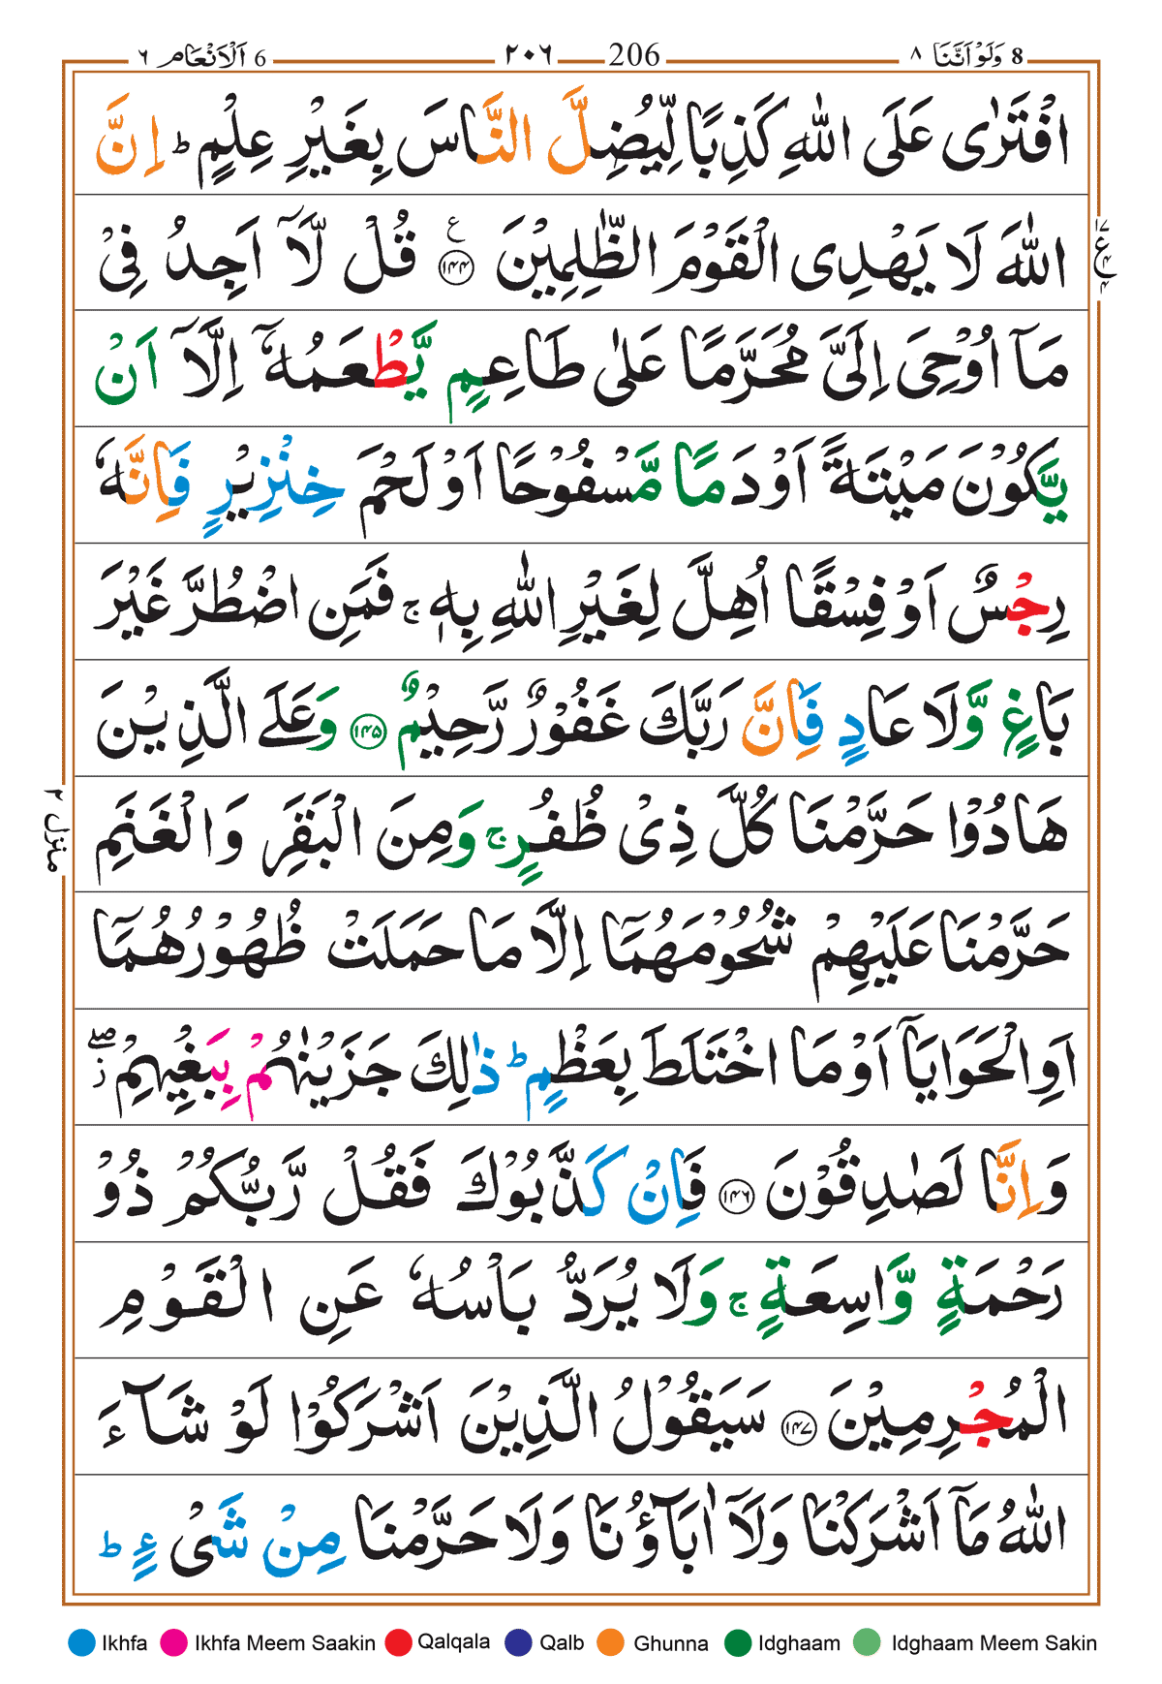 6 اَلْاَنْعَام ٦ 206 ٢٠٦ 8 وَلَوْ اَنَّنَا ٨
افْتَرٰى عَلَى اللّٰهِ كَذِبًا لِّيُضِلَّ النَّاسَ بِغَيْرِ عِلْمٍ ؕ اِنَّ
اللّٰهَ لَا يَهْدِى الْقَوْمَ الظّٰلِمِيْنَ ﴿۱۴۴﴾ ع قُلْ لَّاۤ اَجِدُ فِىْ
مَاۤ اُوْحِىَ اِلَىَّ مُحَرَّمًا عَلٰى طَاعِمٍ يَّطْعَمُهٗۤ اِلَّاۤ اَنْ
يَّكُوْنَ مَيْتَةً اَوْ دَمًا مَّسْفُوْحًا اَوْ لَحْمَ خِنْزِيْرٍ فَاِنَّهٗ
رِجْسٌ اَوْ فِسْقًا اُهِلَّ لِغَيْرِ اللّٰهِ بِهٖ ۚ فَمَنِ اضْطُرَّ غَيْرَ
بَاغٍ وَّلَا عَادٍ فَاِنَّ رَبَّكَ غَفُوْرٌ رَّحِيْمٌ ﴿۱۴۵﴾ وَعَلَى الَّذِيْنَ
هَادُوْا حَرَّمْنَا كُلَّ ذِىْ ظُفُرٍ ۚ وَمِنَ الْبَقَرِ وَالْغَنَمِ
حَرَّمْنَا عَلَيْهِمْ شُحُوْمَهُمَاۤ اِلَّا مَا حَمَلَتْ ظُهُوْرُهُمَاۤ
اَوِ الْحَوَايَاۤ اَوْ مَا اخْتَلَطَ بِعَظْمٍ ؕ ذٰلِكَ جَزَيْنٰهُمْ بِبَغْيِهِمْ ۖ ز
وَاِنَّا لَصٰدِقُوْنَ ﴿۱۴۶﴾ فَاِنْ كَذَّبُوْكَ فَقُلْ رَّبُّكُمْ ذُوْ
رَحْمَةٍ وَّاسِعَةٍ ۚ وَلَا يُرَدُّ بَاْسُهٗ عَنِ الْقَوْمِ
الْمُجْرِمِيْنَ ﴿۱۴۷﴾ سَيَقُوْلُ الَّذِيْنَ اَشْرَكُوْا لَوْ شَآءَ
اللّٰهُ مَاۤ اَشْرَكْنَا وَلَاۤ اٰبَآؤُنَا وَلَا حَرَّمْنَا مِنْ شَىْءٍ ؕ
منزل ٢
Ikhfa Ikhfa Meem Saakin Qalqala Qalb Ghunna Idghaam Idghaam Meem Sakin